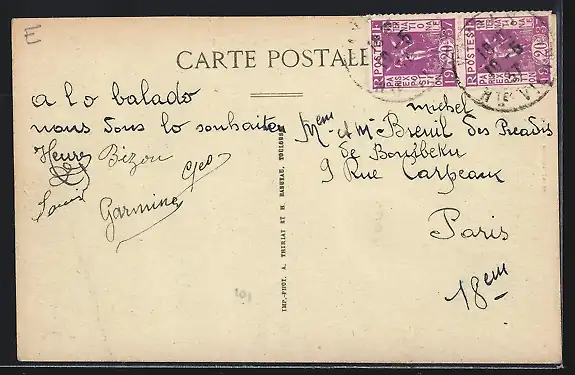 E
CARTE POSTALE
POSTES
R F
EXPOSITION INTERNATIONALE
PARIS 1937
20c
POSTES
R F
EXPOSITION INTERNATIONALE
PARIS 1937
20c
a lo balado
nous vous lo souhaiten
Heure Bizou
Geo
Louis
Garmine
IMP.-PHOT. A. THIRIAT ET H. BASUYAU, TOULOUSE
101
Michel
Mem et Mr Breuil des Preadis
de Bousbeku
9 Rue Carpeaux
Paris
18em